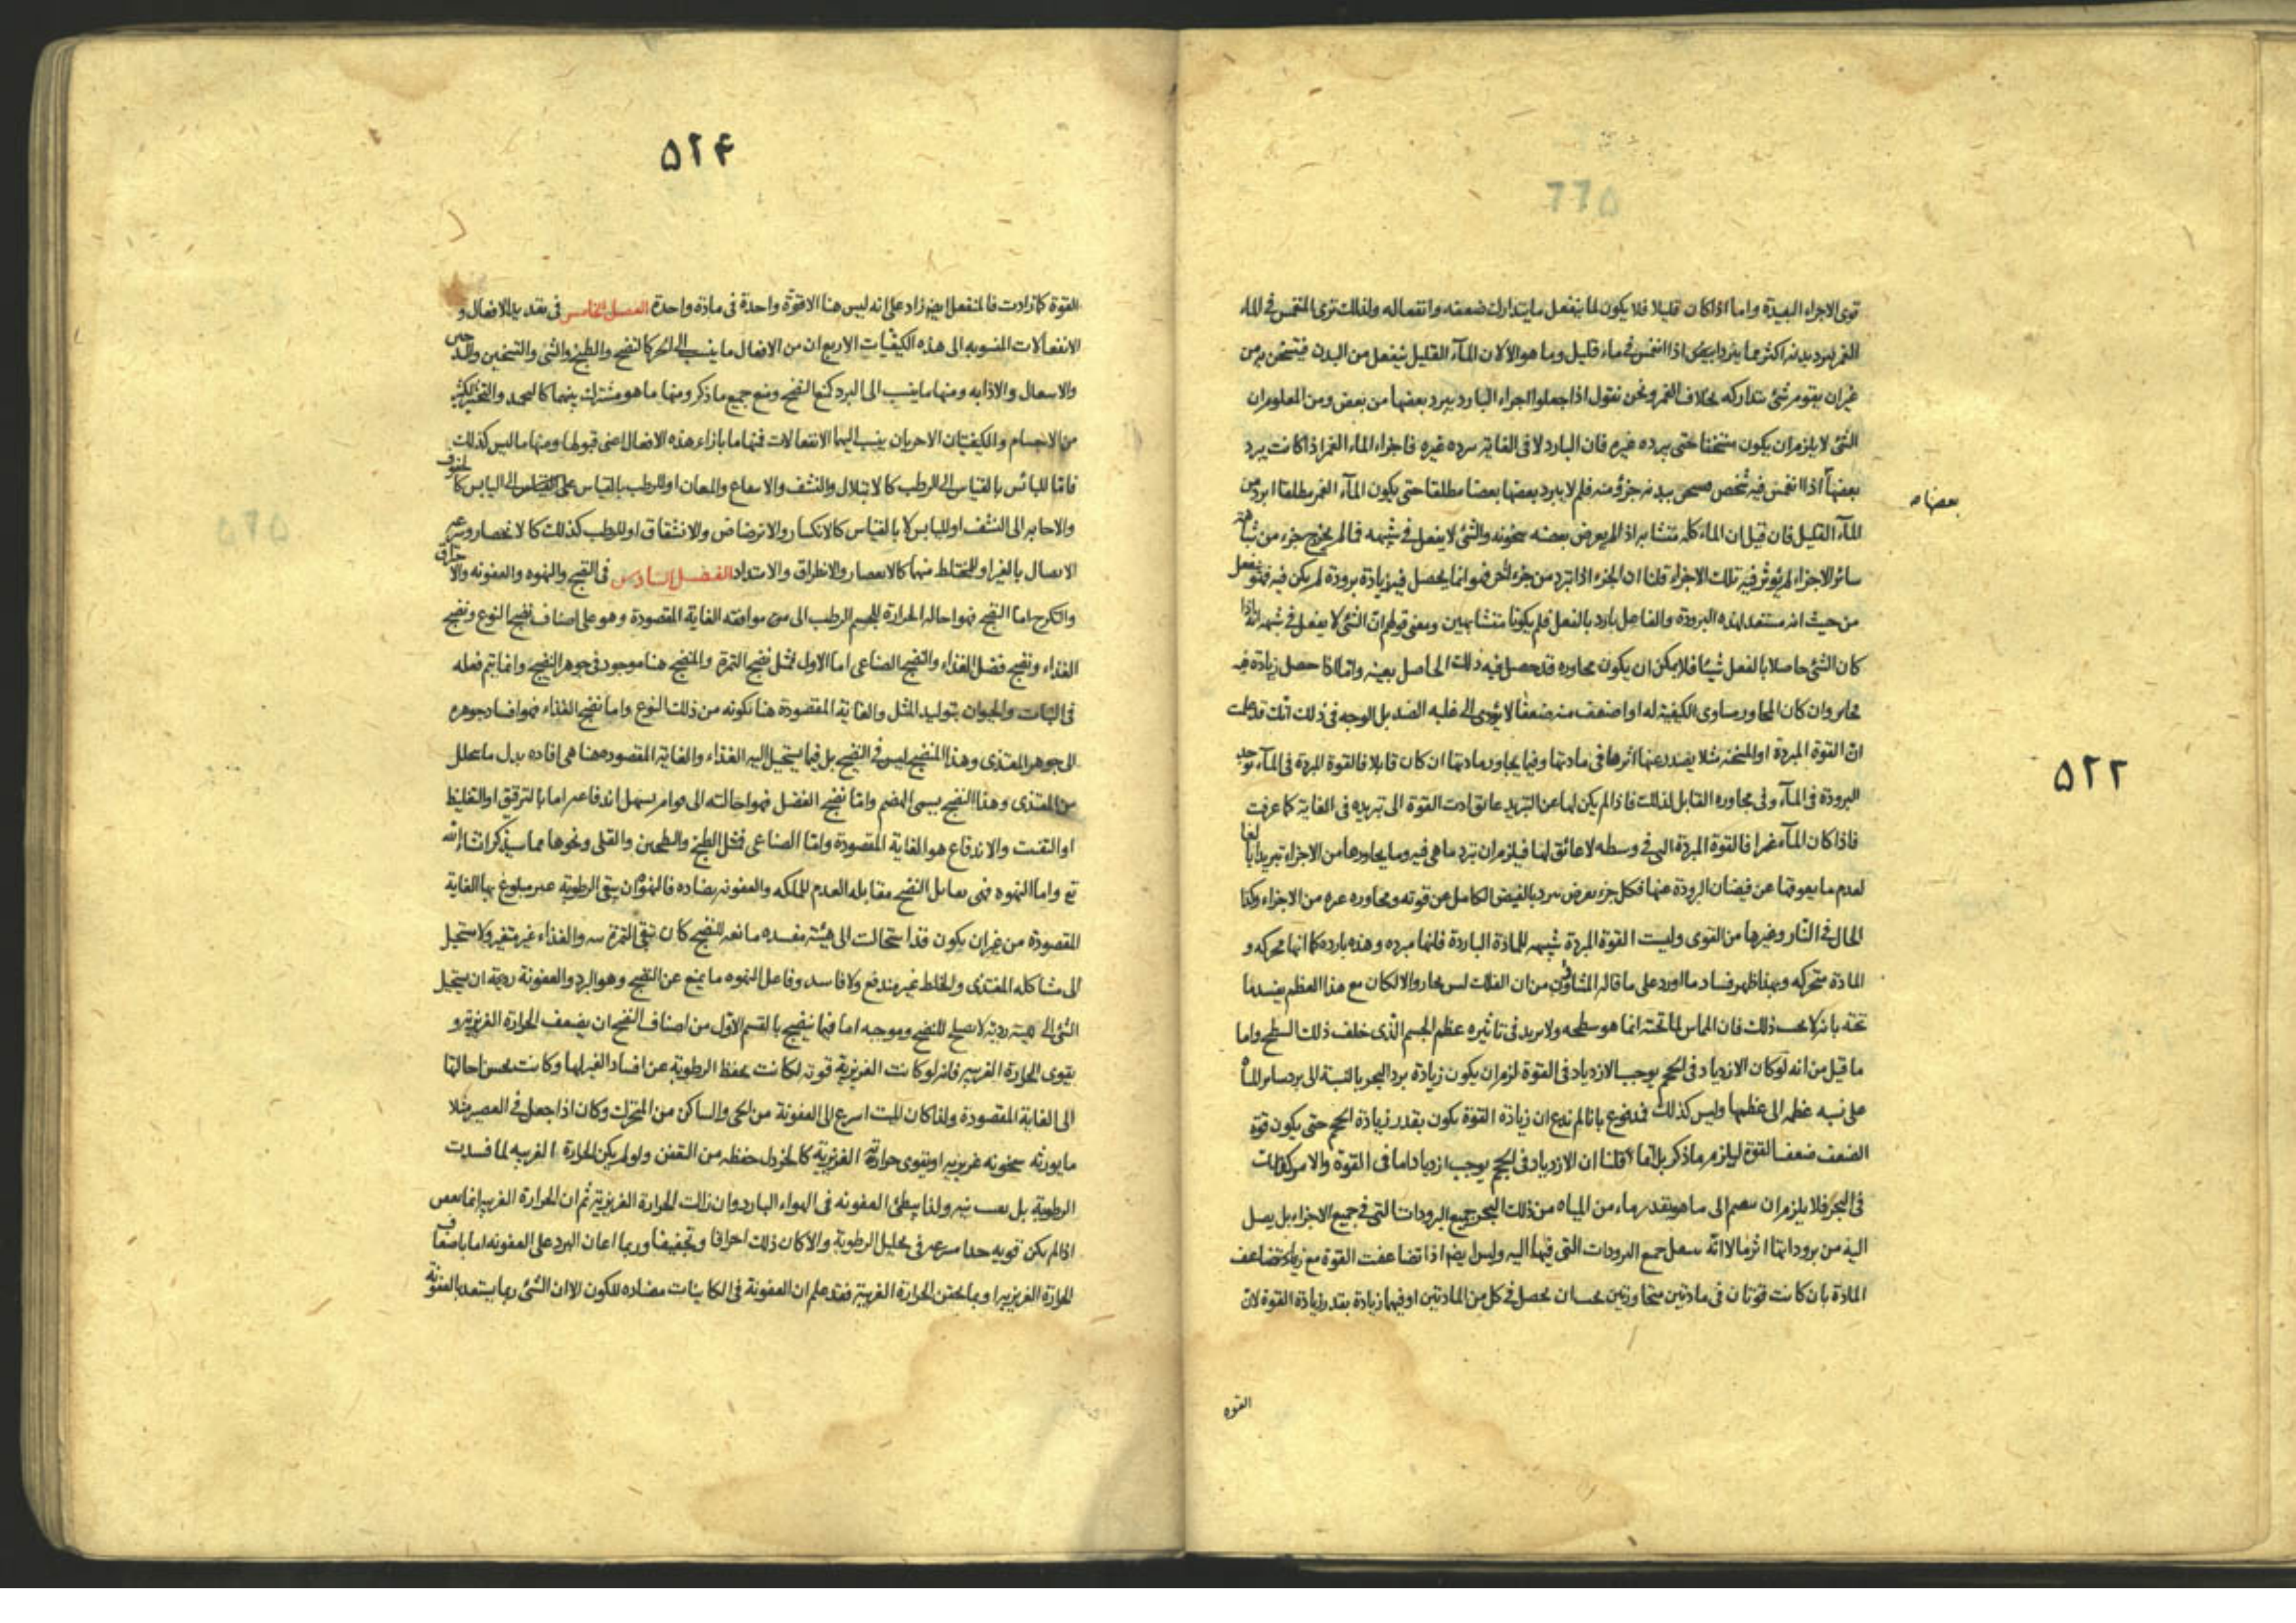 قوى الاجزاء البعيدة واما اذا كان قليلا فلا يكون لما ينفعل ما يتدارك ضعفه وانفعاله ولذلك ترى المنغمس فى الماء
الغمر يبرد بدنه اكثر مما يبرد اذا انغمس فى ماء قليل وما هو الا لان الماء القليل ينفعل من البدن فيتسخن به من
غير ان يقوم شئ يتداركه بخلاف الغمر ونحن نقول اذا جعلوا اجزاء البارد يبرد بعضها من بعض ومن المعلوم ان
الشئ لا يلزم ان يكون متسخنا حتى يبرده غيره فان البارد لا فى الغاية يبرده غيره فاجزاء الماء الغمر اذا كانت يبرد
بعضها اذا انغمس فيه شخص بدنه جزؤ منه فلم لا يبرد بعضها بعضا مطلقا حتى يكون الماء الغمر مطلقا ابرد من
بعضها
الماء القليل فان قيل ان الماء كله متشابه اذا لم يعرض بعضه سخونه والشئ لا ينفعل فى شبيهه فما لم يخرج جزء من
سائر الاجزاء لم يؤثر فيه تلك الاجزاء قلنا ان الجزء اذا تبرد من جزء اخر فهو انما يحصل فيه زيادة برودة لم يكن فيه
من حيث انه مستعد لهذه البرودة والفاعل بارد بالفعل فلم يكونا متشابهين ومعنى قولهم ان الشئ لا يفعل فى شبيهه انه اذا
كان الشئ حاصلا بالفعل شيئا فلا يمكن ان يكون مجاوره قد حصل فيه ذلك الحاصل بعينه واما اذا حصل زيادة فيه
وان كان المجاور مساوى الكيفية له او اضعف منه ضعفا لا يؤدى الى غلبه الضد بل الوجه فى ذلك انك قد علمت
ان القوة المبردة او المسخنه مثلا يصدر عنها اثرها فى مادتها وفيما يجاور مادتها ان كان قابلا فالقوة المبردة فى الماء توجد
البرودة فى الماء وفى مجاوره القابل لذلك فاذا لم يكن لها عن التبريد عائق ادت القوة الى تبريده فى الغاية كما عرفت
فاذا كان الماء غمرا فالقوة المبردة التى فى وسطه لا عائق لها فيلزم ان تبرد ما هى فيه وما يجاورها من الاجزاء تبريدا بالغا
لعدم ما يعوقها عن فيضان البرودة عنها فكل جزء يعرض يبرد بالفيض الكامل عن قوته ومجاوره غيره من الاجزاء وكذا
الحال فى النار وغيرها من القوى وليست القوة المبردة شبيهه للمادة الباردة فانها مبرده وهذه بارده كما انها محركه و
المادة متحركه وبهذا ظهر فساد ما اورد على ما قاله المشاؤن من ان الفلك ليس بحار والا لكان مع هذا العظم يفسد ما
تحته بانه لا يجب ذلك فان المماس لما تحته انما هو سطحه ولا يزيد فى تاثيره عظم الجسم الذى خلف ذلك السطح واما
ما قيل من انه لو كان الازدياد فى الحجم يوجب الازدياد فى القوة لزم ان يكون زيادة برد البحر بالنسبة الى برد ساير الماء
على نسبه عظمه الى عظمها وليس كذلك فمدفوع بانا لم ندع ان زيادة القوة يكون بقدر زيادة الحجم حتى يكون قوة
الضعف ضعف القوة ليلزم ما ذكر بل انما قلنا ان الازدياد فى الحجم يوجب ازديادا ما فى القوة والامر كذلك
فى البحر فلا يلزم ان الى ما هو بقدر ماء من المياه من ذلك البحر جميع البرودات التى فى جميع الاجزاء بل يصل
اليه من بروداتها اثر ما لا انه جميع البرودات التى فيها اليه وليس ايضا اذا تضاعفت القوة مع تضاعف
المادة بان كانت قوتان فى مادتين متجاورتين يجب ان يحصل فى كل من المادتين اوفيهما زيادة بقدر زيادة القوة لان
القوه
٥٢٢
٥٢٤
القوة كما زادت فالمنفعل ايضا زاد على انه ليس هنا الا قوة واحدة فى مادة واحدة الفصل الخامس فى تعديد الافعال و
الانفعالات المنسوبه الى هذه الكيفيات الاربع ان من الافعال ما ينسب الى الحر كالنضج والطبخ والشى والتبخير والتدخين
والاشعال والاذابه ومنها ما ينسب الى البرد كمنع النضج ومنع جميع ما ذكر ومنها ما هو مشترك بينهما كالتجميد والتخثير لكثير
من الاجسام والكيفيتان الاخريان ينسب اليهما الانفعالات فمنها ما بازاء هذه الافعال اعنى قبولها ومنها ما ليس كذلك
فاما لليابس بالقياس الى الرطب كالابتلال والنشف والانتقاع والميعان او للرطب بالقياس الى اليابس كالجفوف
والاجابه الى النشف او لليابس لا بالقياس كالانكسار والارتضاض والانشقاق او للرطب كذلك كالانحصار وسرعه
الاتصال بالغير او للمختلط منها كالانعصار والانطراق والامتداد الفصل السادس فى النضج والنهوه والعفونه والاحتراق
والتكرج اما النضج فهو احاله الحرارة للجسم الرطب الى موافقه الغاية المقصودة وهو على اصناف نضج النوع ونضج
الغذاء ونضج فضل الغذاء والنضج الصناعى اما الاول مثل نضج الثمرة والمنضج هنا موجود فى جوهر النضيج وانما يتم فعله
فى النبات والحيوان بتوليد المثل والغاية المقصودة هنا تكونه من ذلك النوع واما نضج الغذاء فهو افساد جوهره
الى جوهر المغتذى وهذا المنضج ليس فى النضيج بل فيما يستحيل اليه الغذاء والغاية المقصوده هنا هى افاده بدل ما يتحلل
من المغتذى وهذا النضج يسمى الهضم واما نضج الفضل فهو احالته الى قوام يسهل اندفاعه اما بالترقيق او التغليظ
او التفتت والاندفاع هو الغاية المقصودة واما الصناعى فمثل الطبخ والطحين والقلى ونحوها مما سيذكر ان شاء الله
تع واما النهوه فهى تقابل النضج مقابله العدم للملكه والعفونه بضاده فالنهوة ان يبقى الرطوبة غير مبلوغ بها الغاية
المقصودة من غير ان يكون قد استحالت الى هيئة مفسده مانعه للنضج كان تبقى الثمرة نيه والغذاء غير متغير ولا مستحيل
الى مشاكله المغتذى والخلط غير مندفع ولا فاسد وفاعل النهوه ما يمنع عن النضج وهو البرد والعفونة رديه ان يستحيل
الشئ الى هيئة رديه لا يصلح للنضج وموجبه اما فيما ينضج بالقسم الاول من اصناف النضج ان يضعف الحرارة الغريزية و
يقوى الحرارة الغريبه فانه لو كانت الغريزية قويه لكانت تحفظ الرطوبة عن افساد الغير لها وكانت يحسن احالتها
الى الغاية المقصودة ولذا كان الميت اسرع الى العفونة من الحى والساكن من المتحرك وكان اذا جعل فى العصير مثلا
ما يورثه سخونه غريزيه او يقوى حرارته الغريزية كالخردل حفظه من التعفن ولو لم يكن الحرارة الغريبه لما فسدت
الرطوبة بل ولذا يبطئ العفونه فى الهواء البارد وان زالت الحرارة الغريزية ثم ان الحرارة الغريبه انما يعفن
اذا لم يكن قويه جدا سريعه فى تحليل الرطوبة والا كان ذلك احراقا وتجفيفا وربما اعان البرد على العفونه اما باضعاف
الحرارة الغريزيه او بما يحقن الحرارة الغريبة فقد علم ان العفونة فى الكاينات مضاده للكون الا ان الشئ ربما يستعد بالعفونة